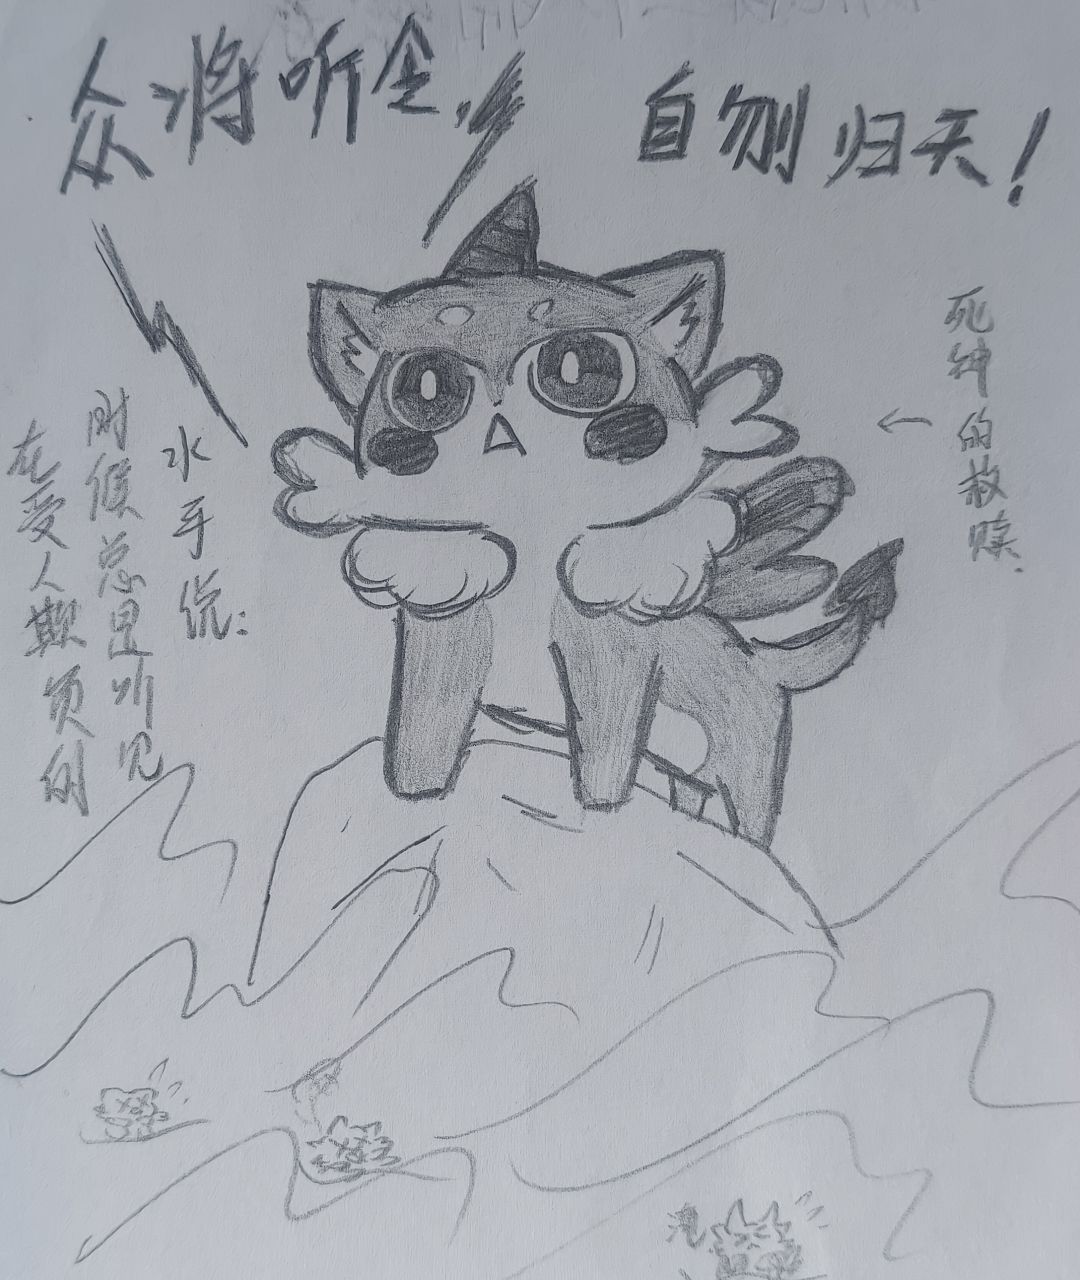 众将听令，
自刎归天！
死神的救赎
水手说：
在受人欺负的
时候总是听见